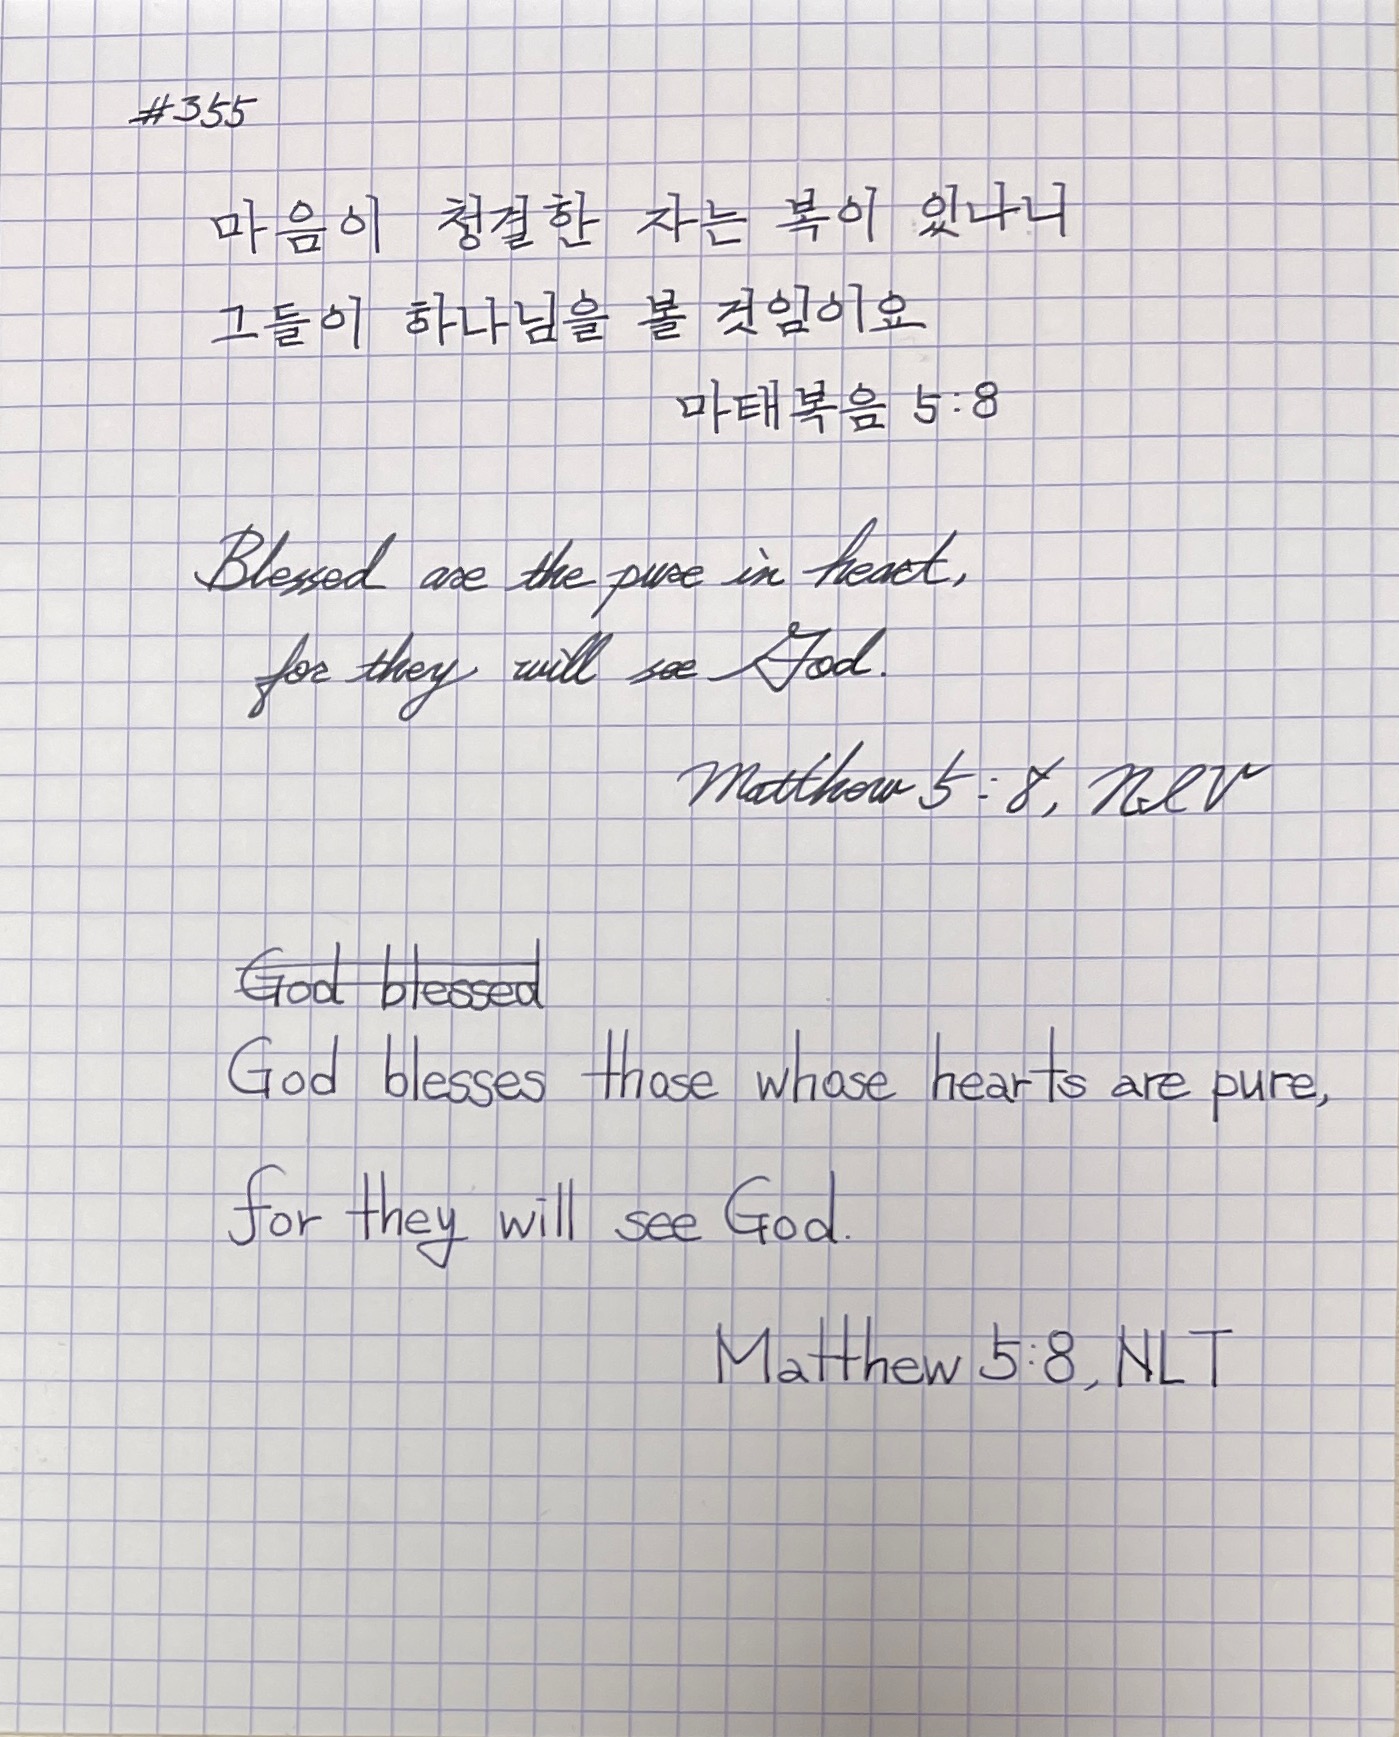 #355
마음이 청결한 자는 복이 있나니
그들이 하나님을 볼 것임이요
마태복음 5:8
Blessed are the pure in heart,
for they will see God.
Matthew 5:8, NIV
God blessed
God blesses those whose hearts are pure,
for they will see God.
Matthew 5:8, NLT